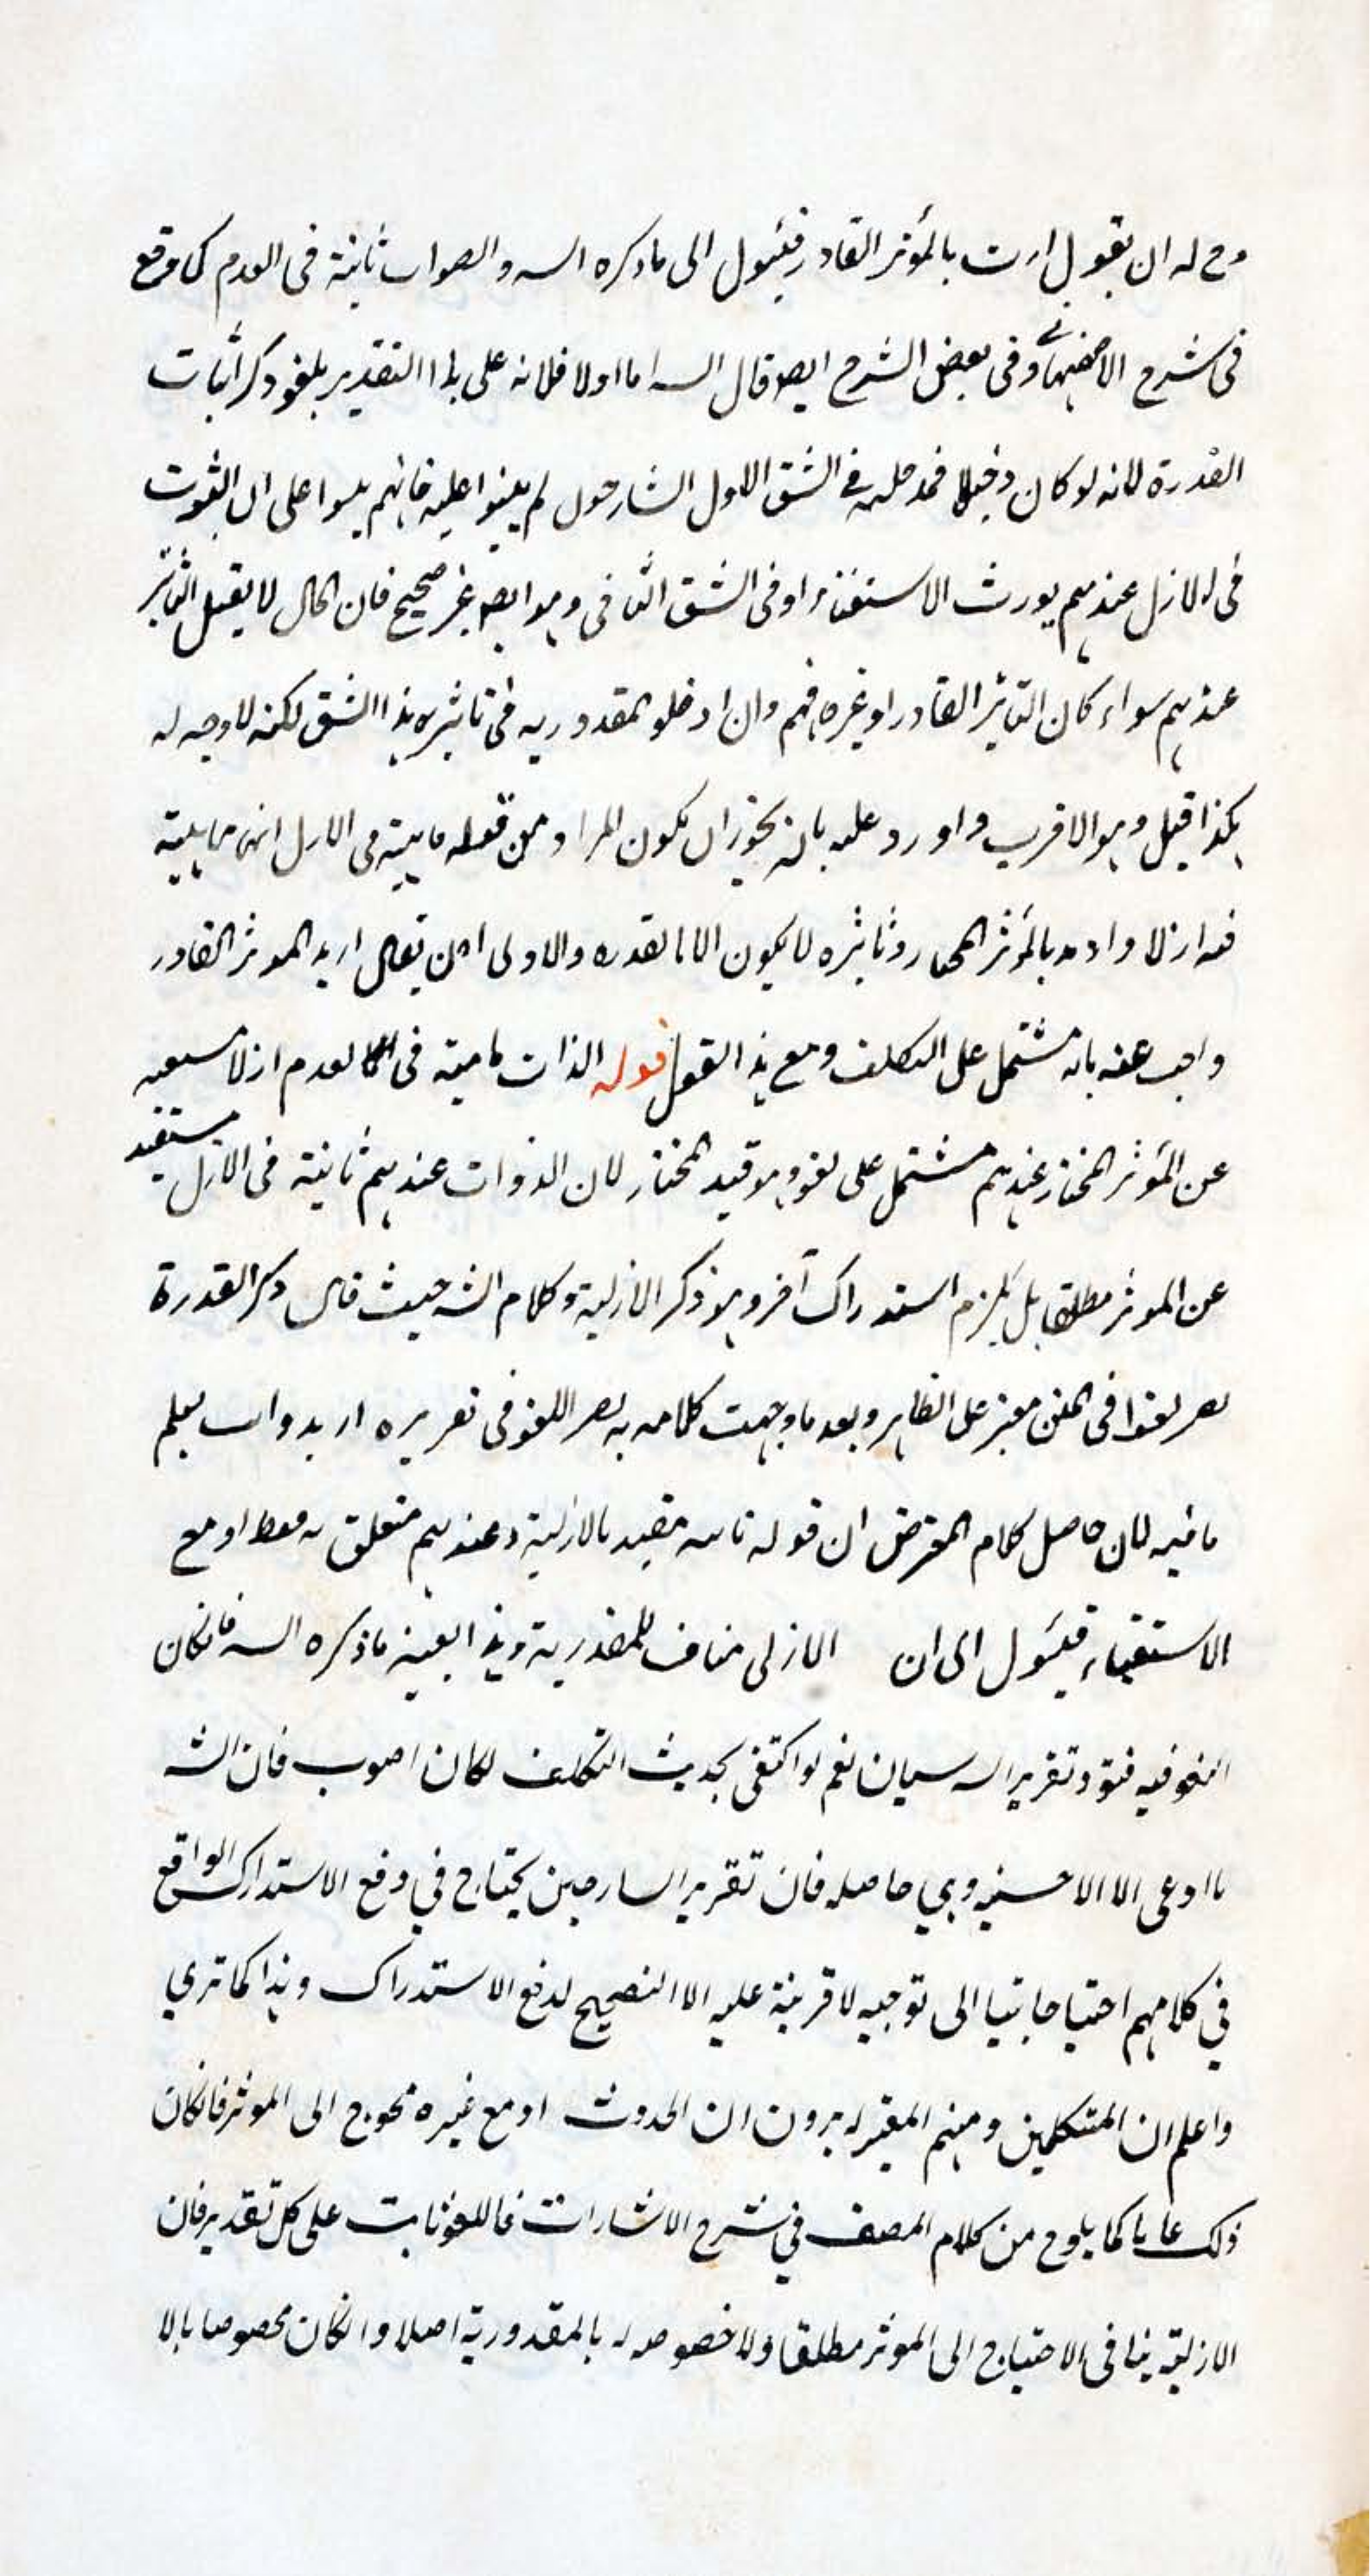 وح له ان يقول اردت بالمؤثر القادر فيئول الى ما ذكره الش والصواب ثابتة فى العدم كما وقع
فى شرح الاصفهانى وفى بعض الشرح ايضا قال الش اما اولا فلانه على هذا التقدير يلغو ذكر اثبات
القدرة لانه لو كان دخيلا فمدخله فى الشق الاول الشارحون لم يبنوا عليه فانهم بنوا على ان الثبوت
فى الازل عندهم يورث الاستغناء او فى الشق الثانى وهو ايضا غير صحيح فان الحال لا يقبل التأثير
عندهم سواء كان التأثير القادر او غيره فهم وان ادخلوا المقدورية فى تاثيره هذا الشق لكنه لا وجه له
هكذا قيل وهو الاقرب واورد عليه بانه يجوز ان يكون المراد من قوله ثابتة فى الازل انها ثابتة
ازلا واراد بالمؤثر المختار وتاثيره لا يكون الا بالقدره والاولى ان يقال اريد الموثر القادر
واجيب عنه بانه مشتمل على التكلف ومع هذا القول قوله الذات ثابتة فى العدم ازلا مستغنية
عن المؤثر المختار عندهم مشتمل على لغو وهو قيد المختار لان الذوات عندهم ثابتة فى الازل مستغنية
عن الموثر مطلقا بل يلزم استدراك آخر وهو ذكر الازلية وكلام الش حيث قال ذكر القدرة
يصير لغوا فى المتن معتبر على الظاهر وبعد ما وجهت كلامه به يصير اللغو فى تقريره ازيد وانت تعلم
ما فيه لان حاصل كلام المعترض ان قوله ثابتة مقيد بالازلية وعندهم متعلق به فقط او مع
الاستغناء فيئول الى ان الازلى مناف للمقدورية وهذا بعينه ما ذكره الش فان كان
اللغو فيه فهو وتقرير الش سيان نعم لو اكتفى بحديث التكلف لكان اصوب فان الش
ما ادعى الا الاحسنية وهي حاصله فان تقرير الشارحين يحتاج في دفع الاستدراك الواقع
في كلامهم احتياجا بينا الى توجيه لا قرينة عليه الا التصحيح لدفع الاستدراك وهذا كما تري
واعلم ان المتكلمين ومنهم المعتزله يرون ان الحدوث او مع غيره محوج الى الموثر فان كان
ذلك عاما كما يلوح من كلام المصنف في شرح الاشارات فاللغو ثابت على كل تقدير فان
الازلية ينافى الاحتياج الى الموثر مطلقا ولا خصوصه له بالمقدورية اصلا وان كان مخصوصا بالا